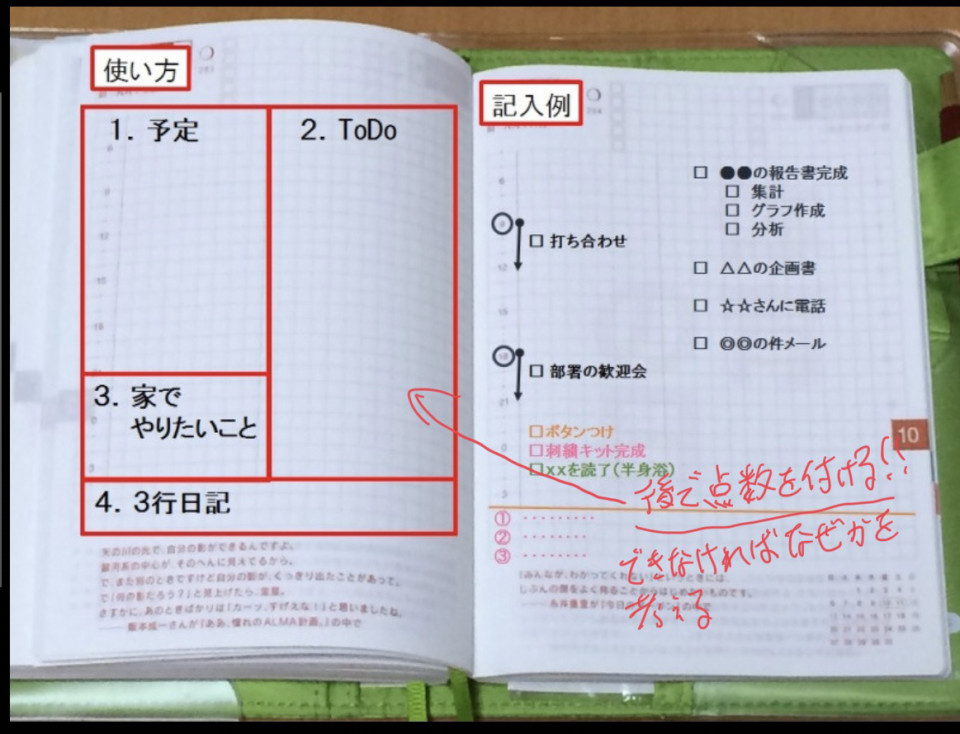 使い方
1. 予定
2. ToDo
3. 家で
やりたいこと
4. 3行日記
矢の川の光で、自分の影ができるんですよ。
銀河系の中心が、そのへんに見えてるから。
で、また別のときですけど自分の影が、くっきり出たことがあって、
で「何の影だろう?」と見上げたら、金星。
さすがに、あのときばかりは「カーッ、すげえな!」と思いましたね。
――阪本成一さんが『ああ、憧れのALMA計画。』の中で
記入例
□ ●●の報告書完成
□ 集計
□ グラフ作成
□ 分析
9
□ 打ち合わせ
12
□ △△の企画書
15
□ ☆☆さんに電話
□ ◎◎の件メール
18
□ 部署の歓迎会
21
□ボタンつけ
□刺繍キット完成
□xxを読了(半身浴)
10
後で点数を付ける!!
できなければなぜかを
考える
① ・・・・・・・・・
② ・・・・・・・・・
③ ・・・・・・・・・
「みんなが、わかってくれない」というときには、